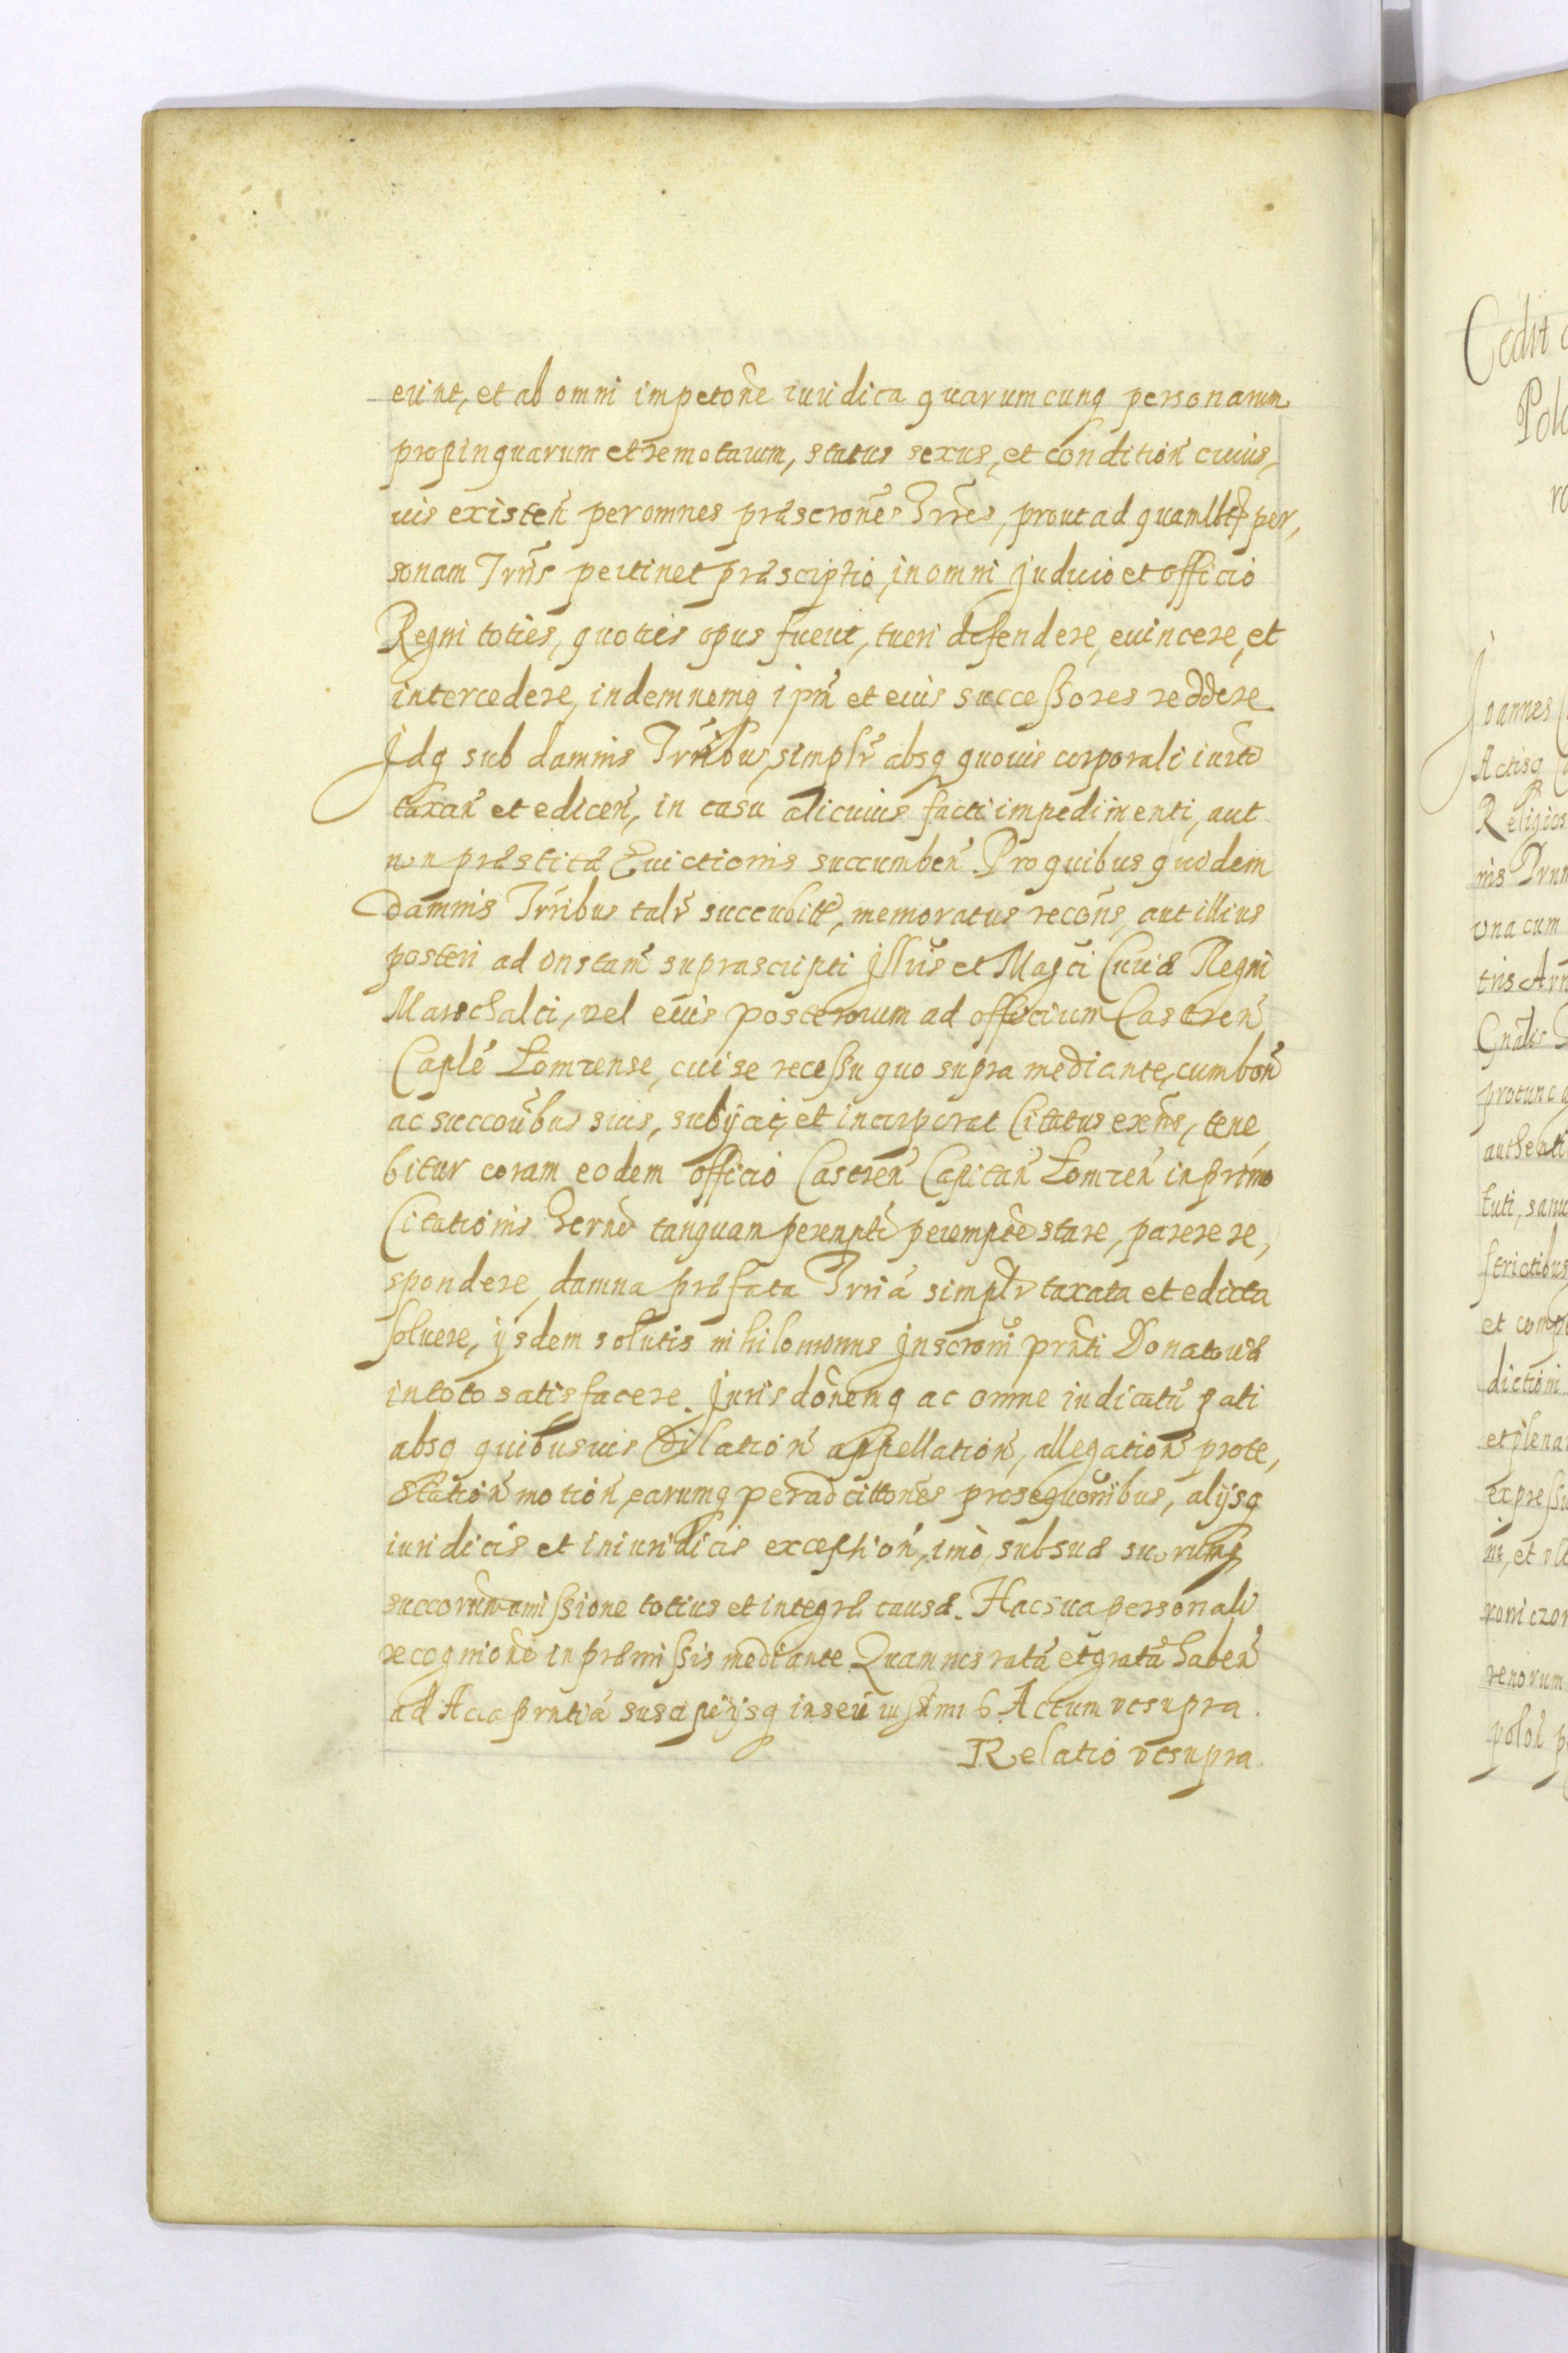 erint, et ab omni impetoñe iuridica quarumcunq personarum
propinquarum et remotarum, status sexus, et condition cuius,
uis existeñ per omnes præscroñes Trres, prout ad quamlbt per,
sonam Trris pertinet præscriptio, in omni judicio et officio
Regni toties, quoties opus fuerit, tueri defendere, euincere, et
intercedere, indemnemq ipm et eius successores reddere
Jdq sub damnis Trribus simplr absq quouis corporali iurto
taxañ et ediceñ, in casu alicuius facti impedimenti, aut
non præstitæ Euictionis succumbeñ. Pro quibus quidem
damnis Trribus talr succubitt, memoratus recoñs, aut illius
posteri ad Instam suprascripti Jllris et Magci Curiæ Regni
Marschalci, vel eius posterorum ad officium Castreñ
Caplé Łomzense, cui se recessu quo supra mediante, cum boñ
ac succoribus suis, subijcit, et incorporat Citatus exñs, tene,
bitur coram eodem officio Castreñ Capitañ Łomzeñ in primo
Citationis Termo tanquam perempto perempte stare, parere re,
spondere, damna præfata Trria simplr taxata et edicta
soluere, ijsdem solutis nihilominus Jnscroni prnti Donatoriæ
in toto satisfacere. Jurisdonemq ac omne iudicatũ pati
absq quibusuis Dilatioñ appellatioñ, allegatioñ prote,
statioñ motioñ, earumq per ad cittones prosequonibus, alijsq
iuridicis et iniuridicis exceptioñ, imò, sub suæ suorumq
succorum amissione totius et integræ causæ. Hac sua personali
recognione in præmissis mediante. Quam nos ratã et gratã habeñ
ad Acta prntia suscipi ijsq inseri iussimus. Actum vt supra.
Relatio vt supra.
Cedit
Polo
Joannes
Actisq
Religios
nis
vna cum
tris
Gnalis
protunc
authenti
tuti, sanu
strictibus
et comp
dictioni
et plena
expressu
ni, et
roniczor
renorum
poloñ p